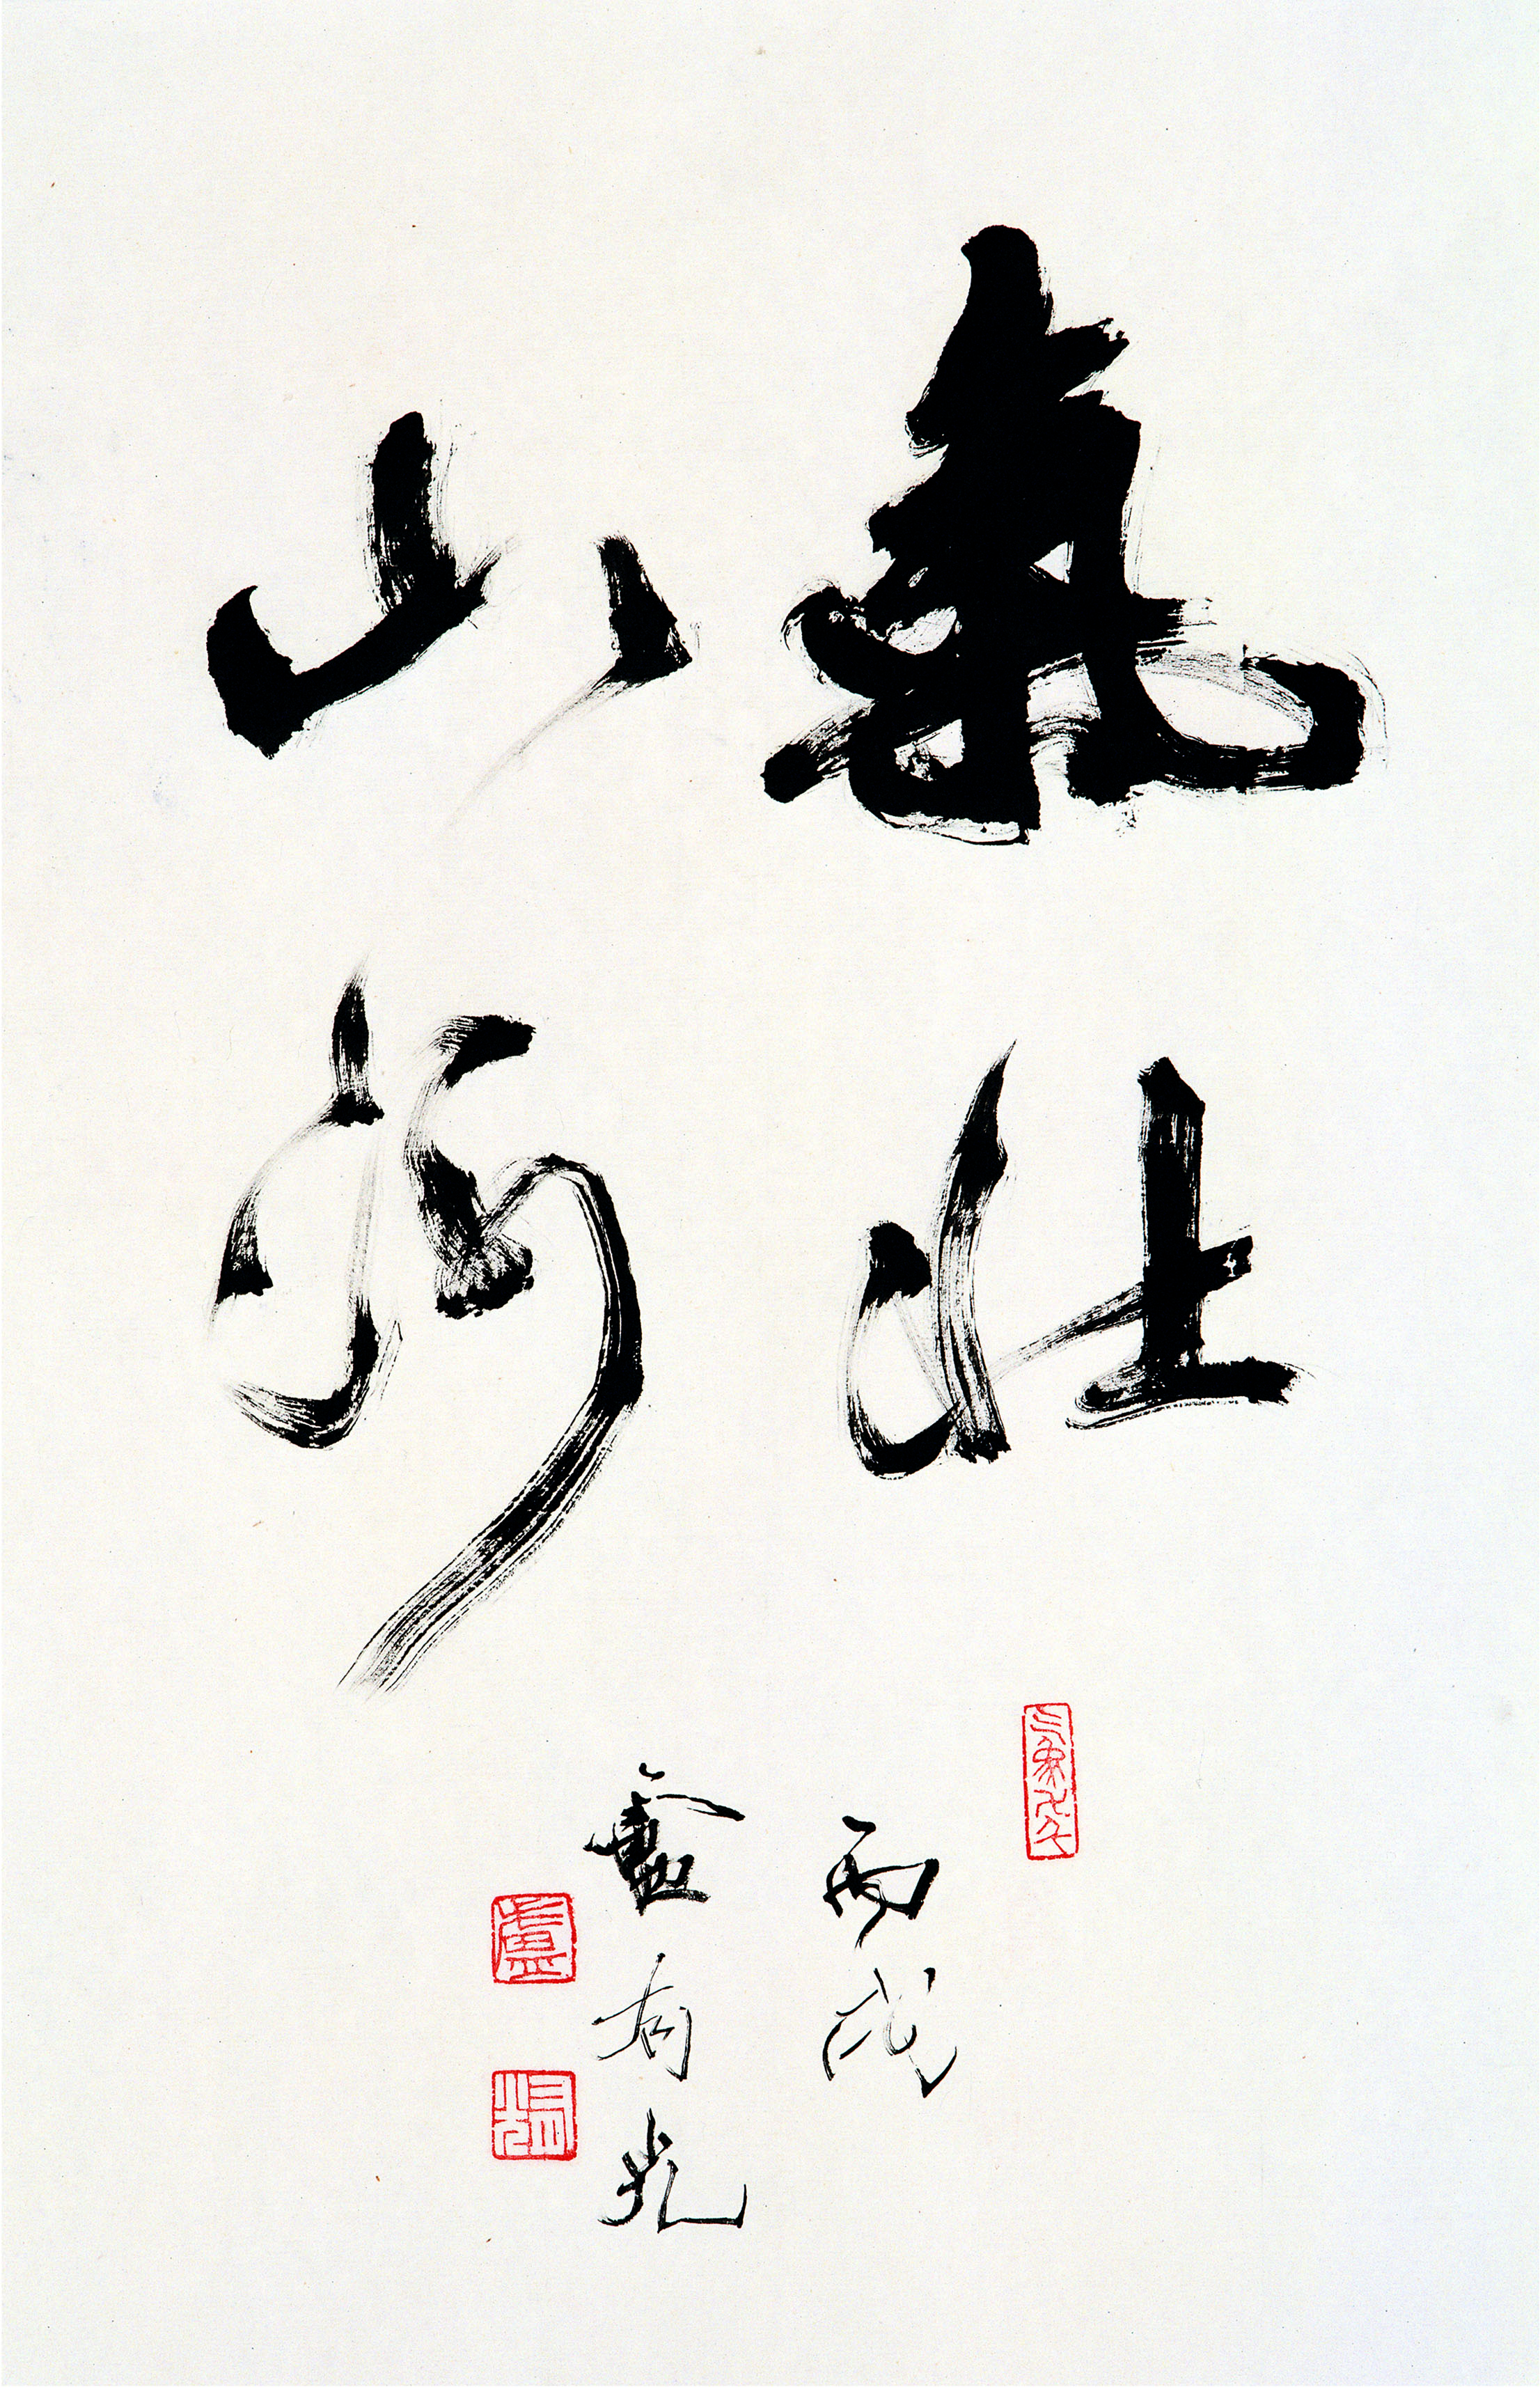 氣壯
山河
丙戌
盧有光